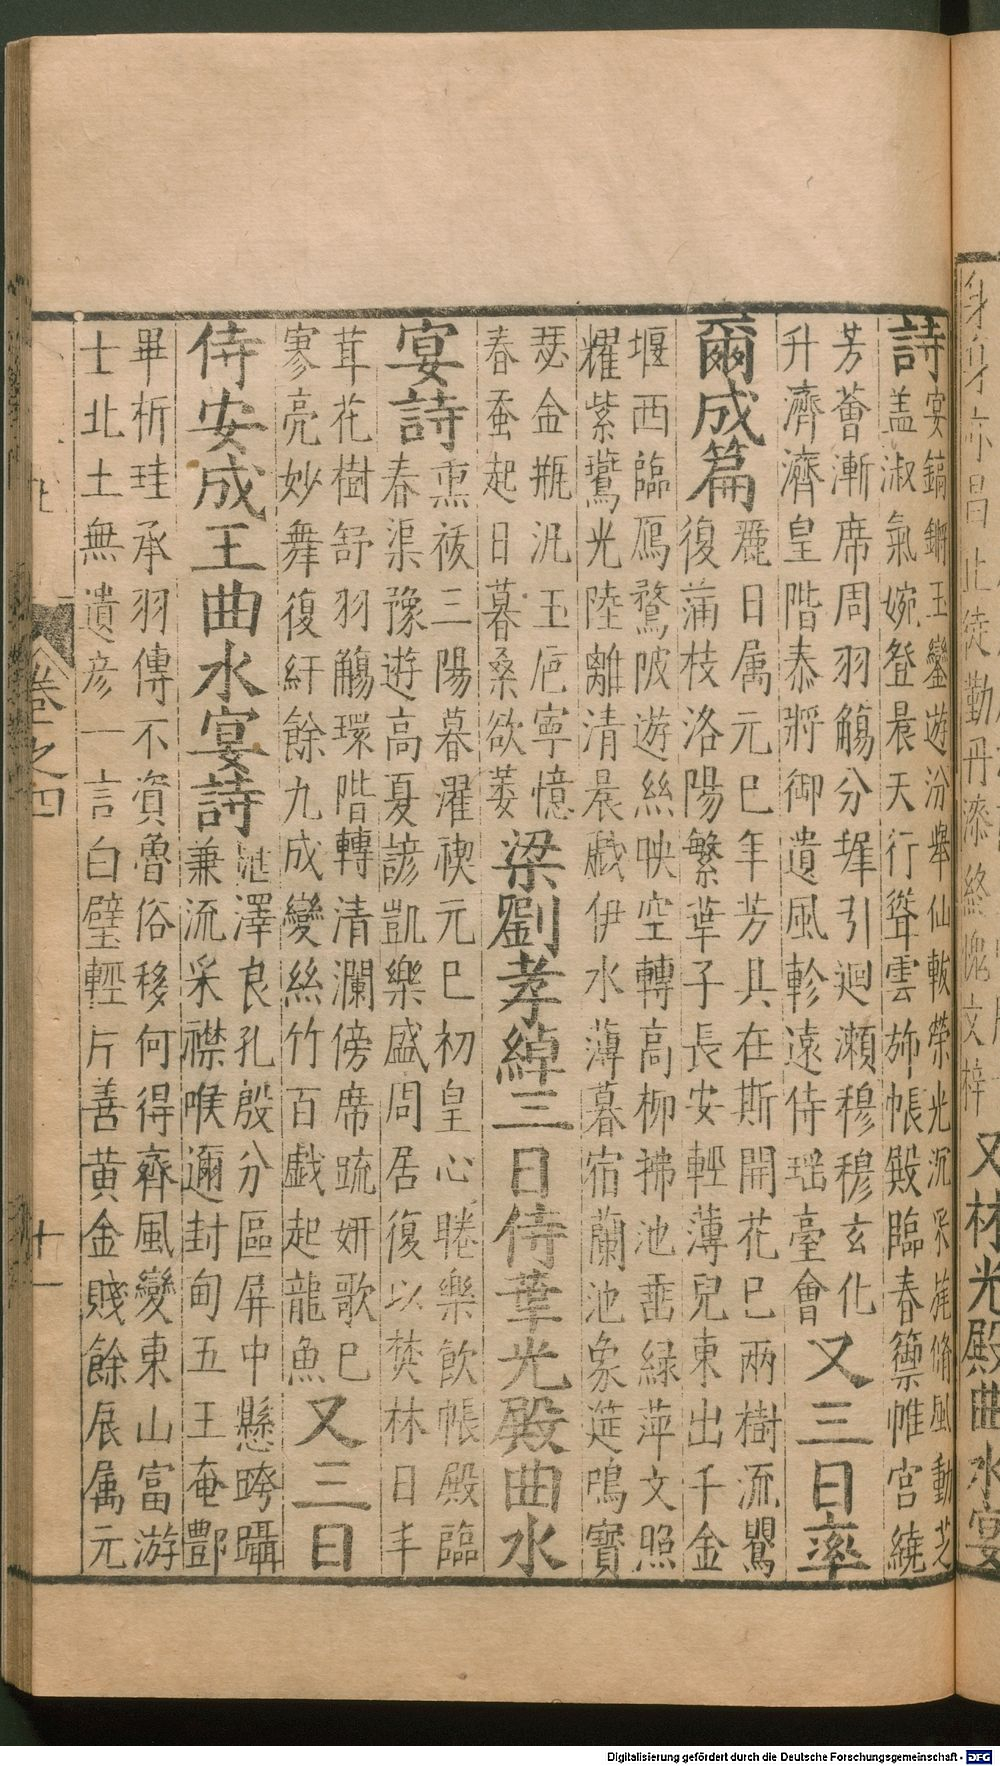 又林光殿曲水宴
詩
宴鎬鏘玉鑾遊汾舉仙軷榮光沉采旄脩風動芝
蓋淑氣婉登晨天行聳雲斾帳殿臨春籞帷宮繞
芳薈漸席周羽觴分墀引迴瀨穆穆玄化
升濟濟皇階泰將御遺風軫遠侍瑶臺會
又三日率
爾成篇
麗日属元巳年芳具在斯開花巳兩樹流鸎
復蒲枝洛陽繁華子長安輕薄兒東出千金
堰西臨鴈鶩陂遊絲映空轉高柳拂池垂緑萍文照
耀紫鷰光陸離清晨戲伊水薄暮宿蘭池象筵鳴寳
瑟金瓶汎玉巵寧憶
春蚕起日暮桑欲萎
梁劉孝綽三日侍華光殿曲水
宴詩
熏祓三陽暮濯禊元巳初皇心睠樂飲帳殿臨
春渠豫遊高夏諺凱樂盛周居復以焚林日丰
茸花樹舒羽觴環階轉清瀾傍席疏妍歌巳
寥亮妙舞復紆餘九成變絲竹百戲起龍魚
又三日
侍安成王曲水宴詩
誕澤良孔殷分區屏中懸跨躡
兼流采襟喉邇封甸五王奄酆
畢析珪承羽傳不資魯俗移何得齊風變東山富游
士北土無遺彦一言白璧輕片善黄金賤餘展属元
卷之四
十一
Digitalisierung gefördert durch die Deutsche Forschungsgemeinschaft - DFG